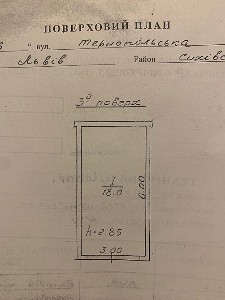 ПОВЕРХОВИЙ ПЛАН
вул. Тернопільська
Львів Район Сихівс
3й поверх
1
18.0
6.00
h=2.85
3.00